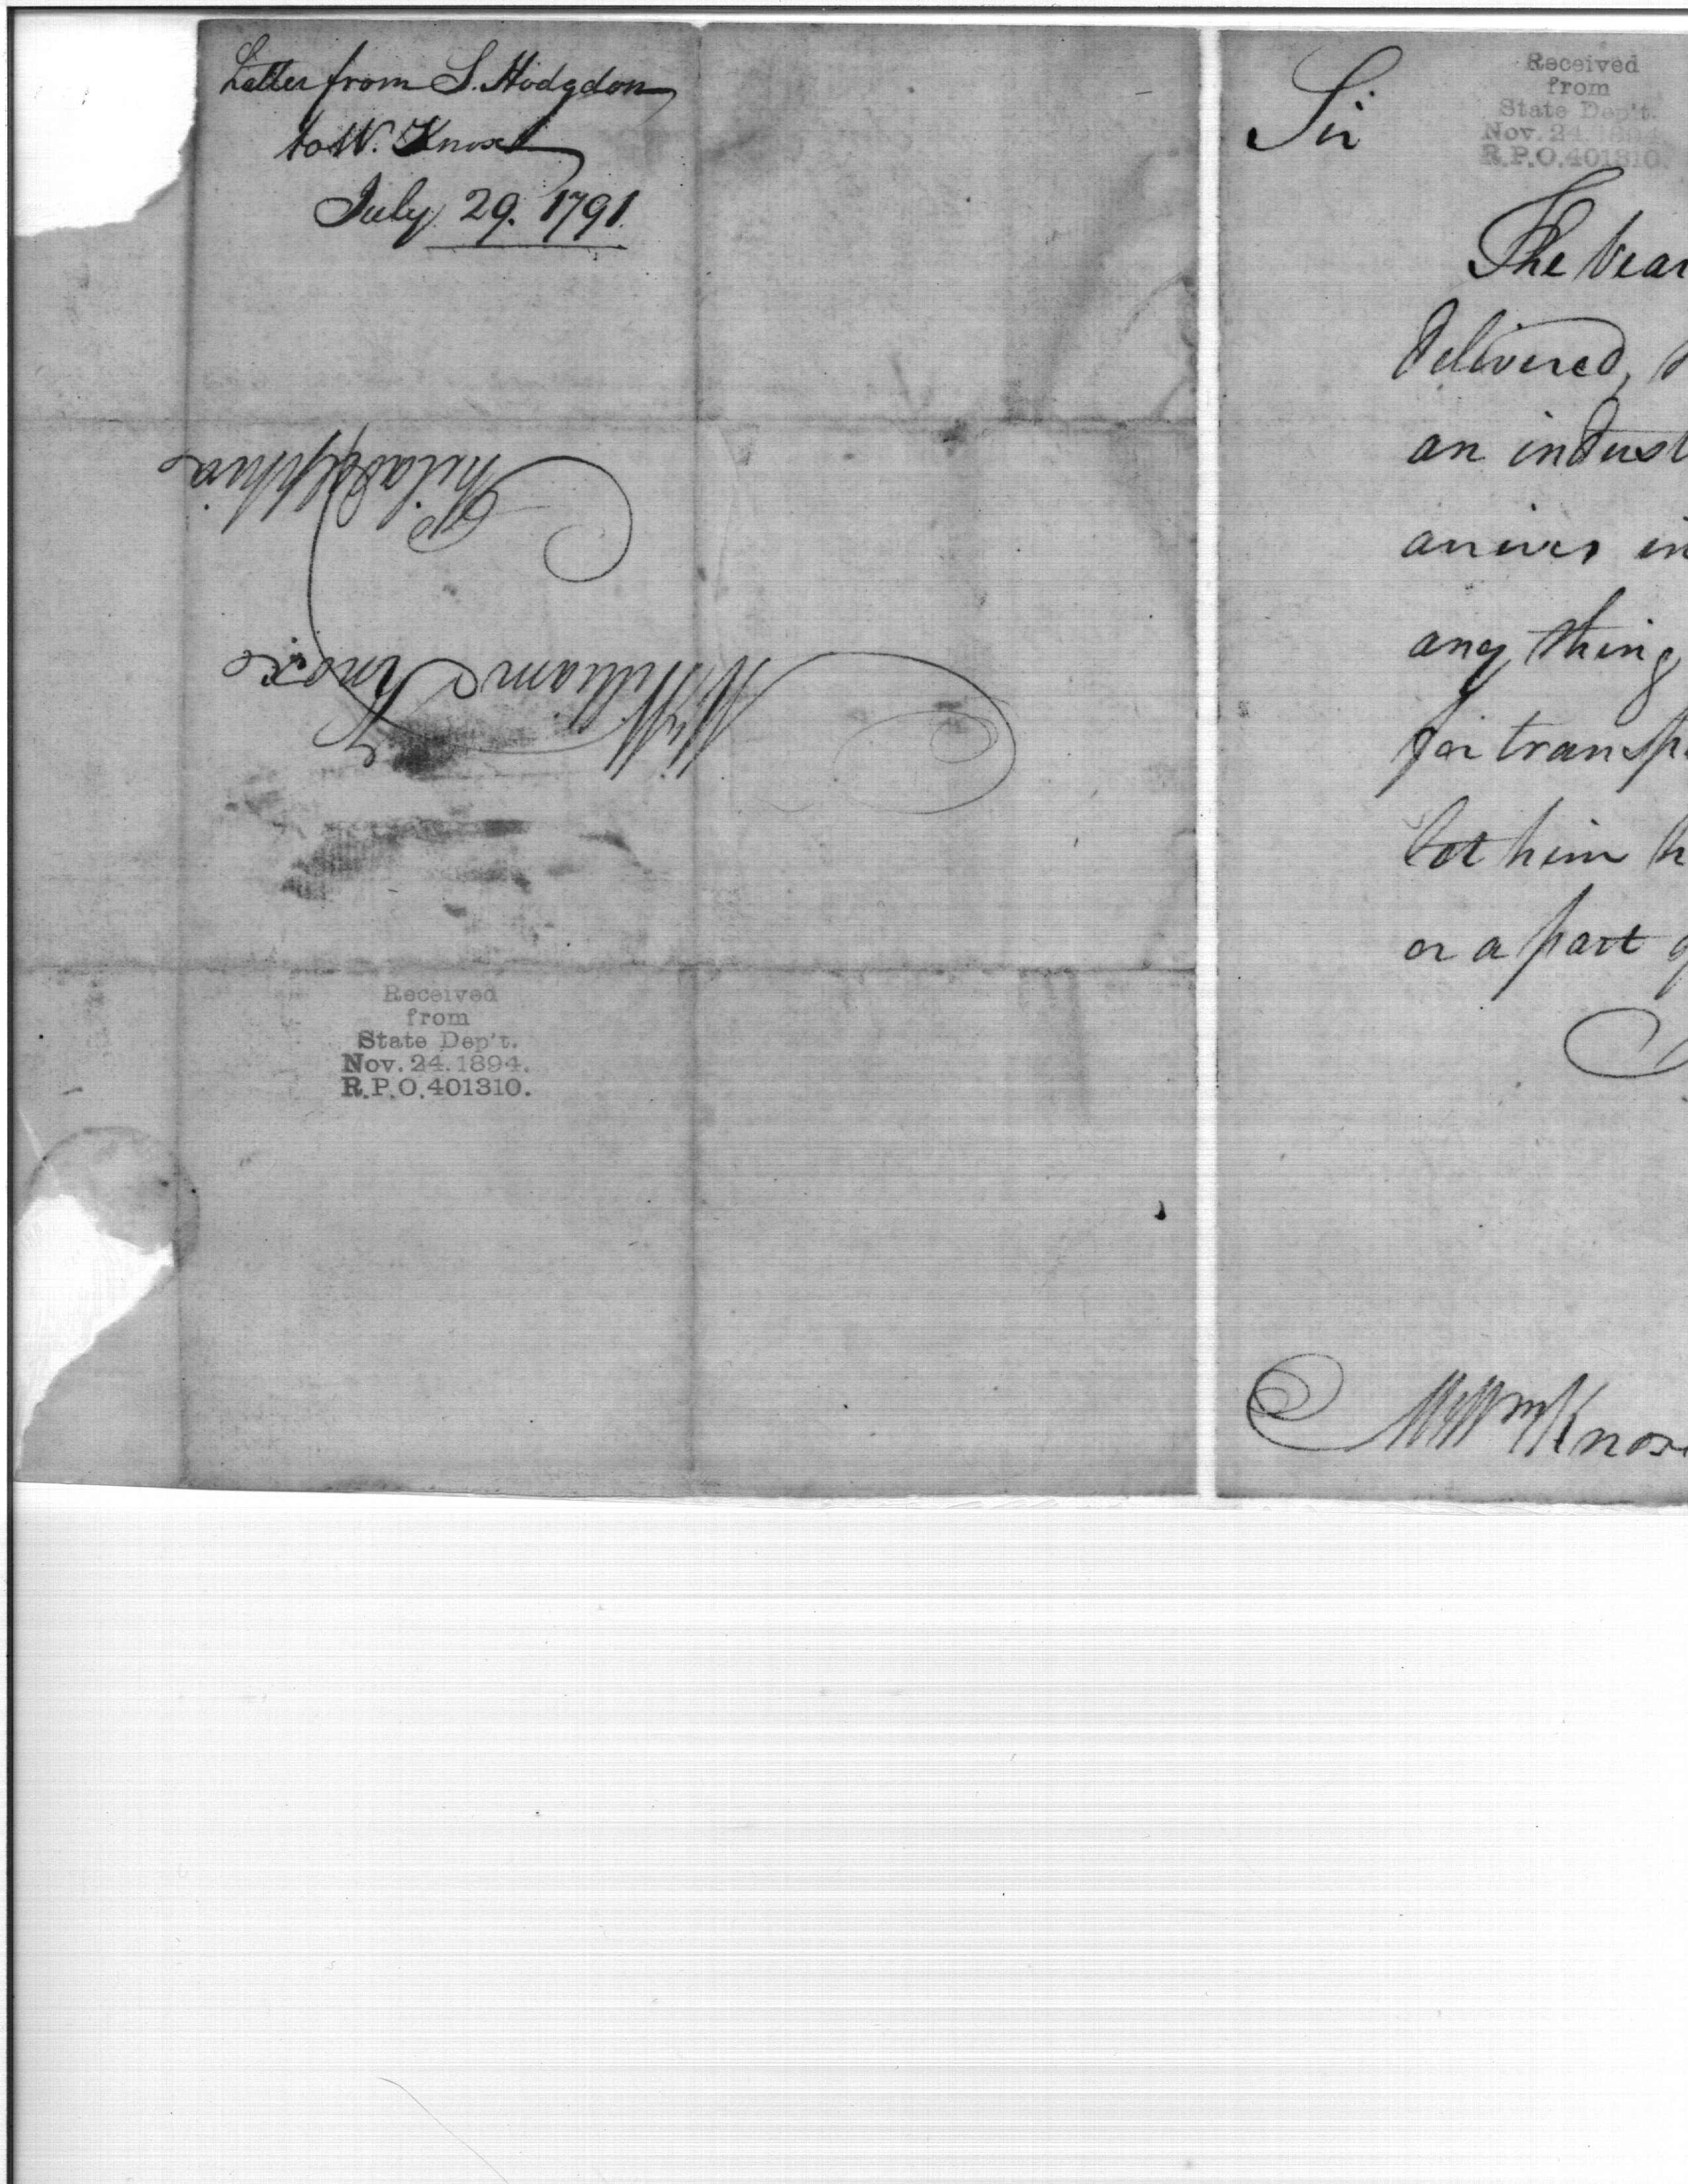 Letter from S. Hodgdon
to W. Knox
July 29. 1791.
Mr. William Knox
Philadelphia
Received
from
State Dep't.
Nov. 24. 1894.
R.P.O. 401310.
Sir
Received
from
State Dep't.
Nov. 24. 1894.
R.P.O. 401310.
The bear
delivered,
an indust
arrives in
any thing
for transp
let him h
or a part
Mr Wm Knox